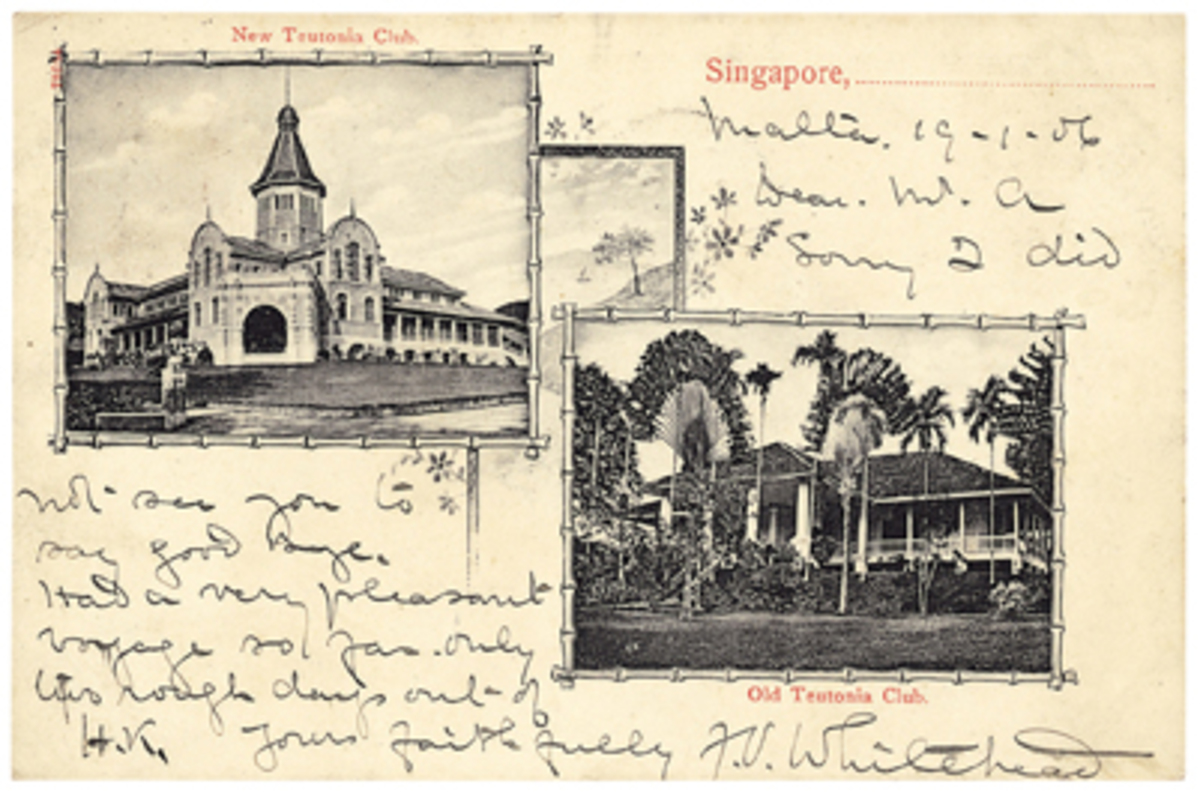 New Teutonia Club.
Singapore,
Malta. 19-1-06
Dear. Mr. A
Sorry I did
not see you to
say good bye.
Had a very pleasant
voyage so far. only
two rough days out of
H.K. Yours faithfully F.V. Whitehead
Old Teutonia Club.